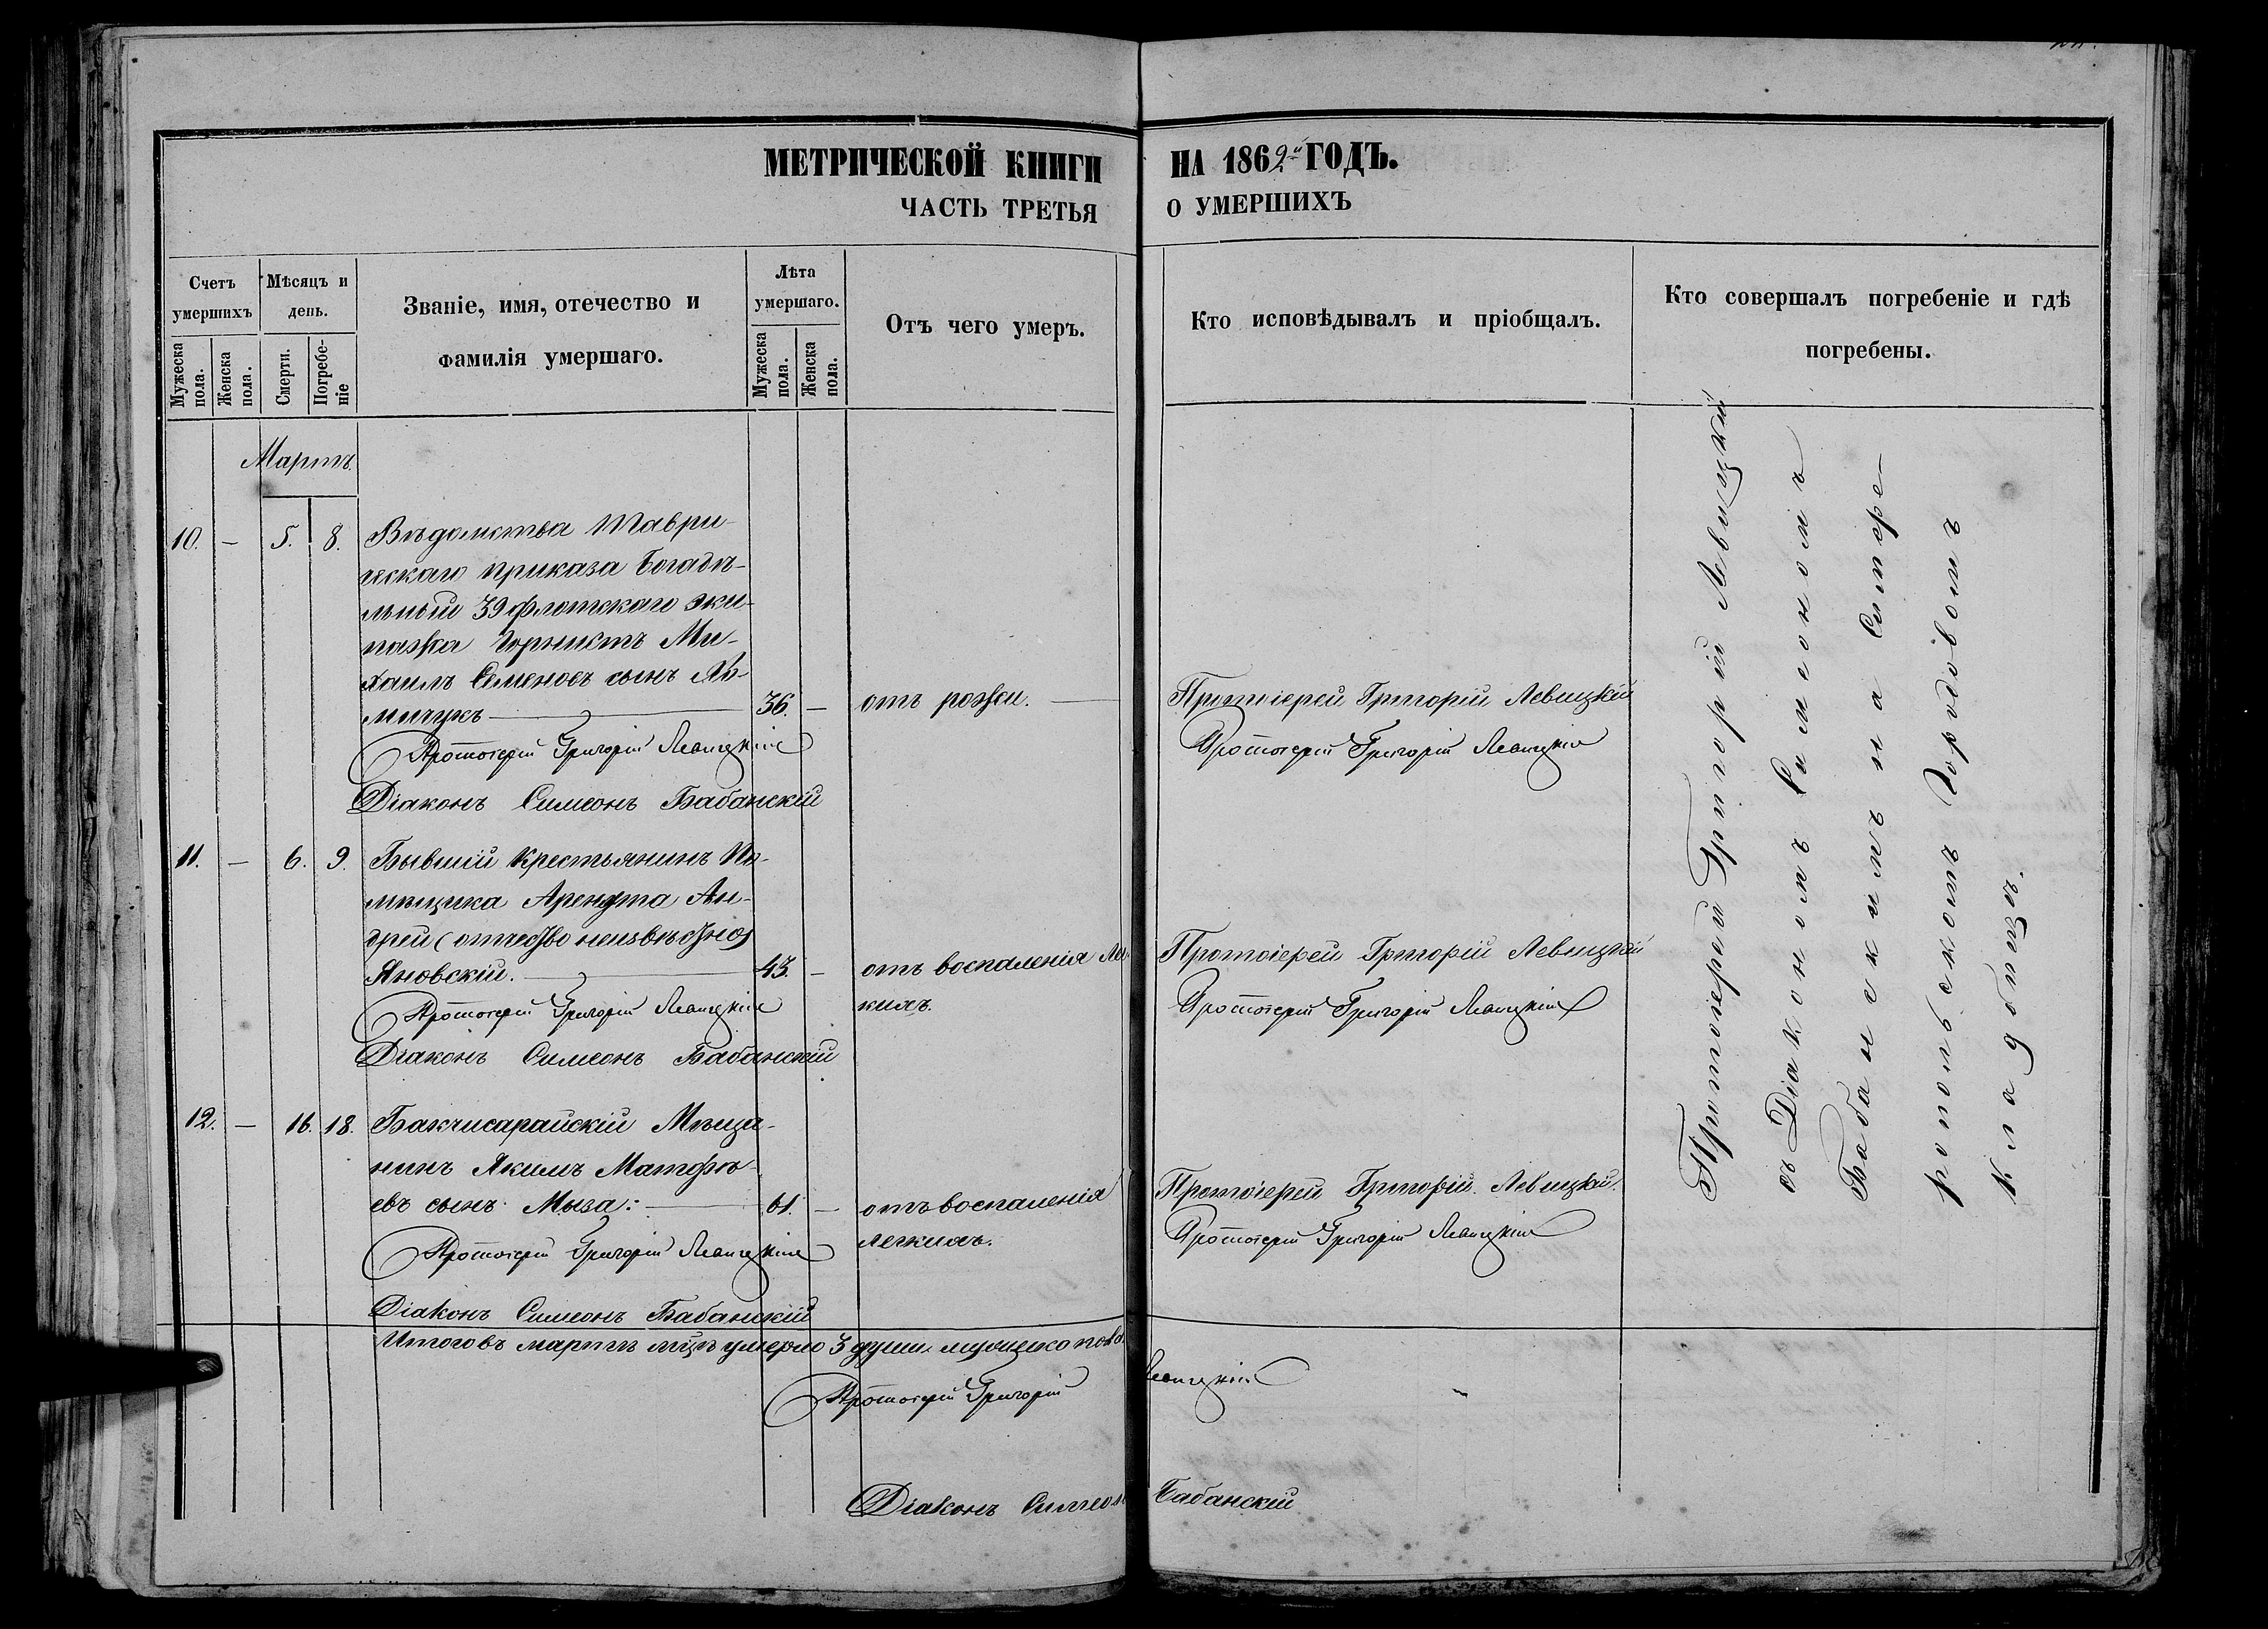 МЕТРИЧЕСКОЙ КНИГИ НА 1862й ГОДЪ.
ЧАСТЬ ТРЕТЬЯ О УМЕРШИХЪ
Счетъ умершихъ
Мужеска пола.
Женска пола.
Мѣсяцъ и день.
Смерти.
Погребеніе
Званіе, имя, отечество и
фамилія умершаго.
Лѣта умершаго.
Мужеска пола.
Женска пола.
Отъ чего умеръ.
Кто исповѣдывалъ и пріобщалъ.
Кто совершалъ погребеніе и гдѣ
погребены.
Мартъ.
10. — 5. 8. Вѣдомства Таври-
ческаго приказа Богадѣ-
льный 39 флотскаго эки-
пажа Горнистъ Ми-
хаилъ Семеновъ сынъ
мичукъ — 36. — отъ рожи. — Протоіерей Григорій Левицкій
Протоіерей Григорій Левицкій
Протоіерей Григорій Левицкій
Діаконъ Симеонъ Бабанскій
11. — 6. 9. Бывшій крестьянинъ По-
мѣщика Арендта Ан-
дрей (отчество неизвѣстно)
Яновскій. — 43. — отъ воспаленія ле- Протоіерей Григорій Левицкій
кихъ.
Протоіерей Григорій Левицкій
Протоіерей Григорій Левицкій
Діаконъ Симеонъ Бабанскій
12. — 16. 18. Бакчисарайскій Мѣща-
нинъ Якимъ Матфѣ-
евъ сынъ Мыза: — 61. — отъ воспаленія Протоіерей Григорій Левицкій.
легкихъ.
Протоіерей Григорій Левицкій
Протоіерей Григорій Левицкій
Діаконъ Симеонъ Бабанскій
Протоіерей Григорій Левицкій
съ Діакономъ Симеономъ
Бабанскимъ на Симфе-
ропольскомъ Городовомъ
кладбищѣ.
Итого въ мартѣ мцѣ умерло 3 души мужеска пола.
Протоіерей Григорій Левицкій
Діаконъ Симеонъ Бабанскій